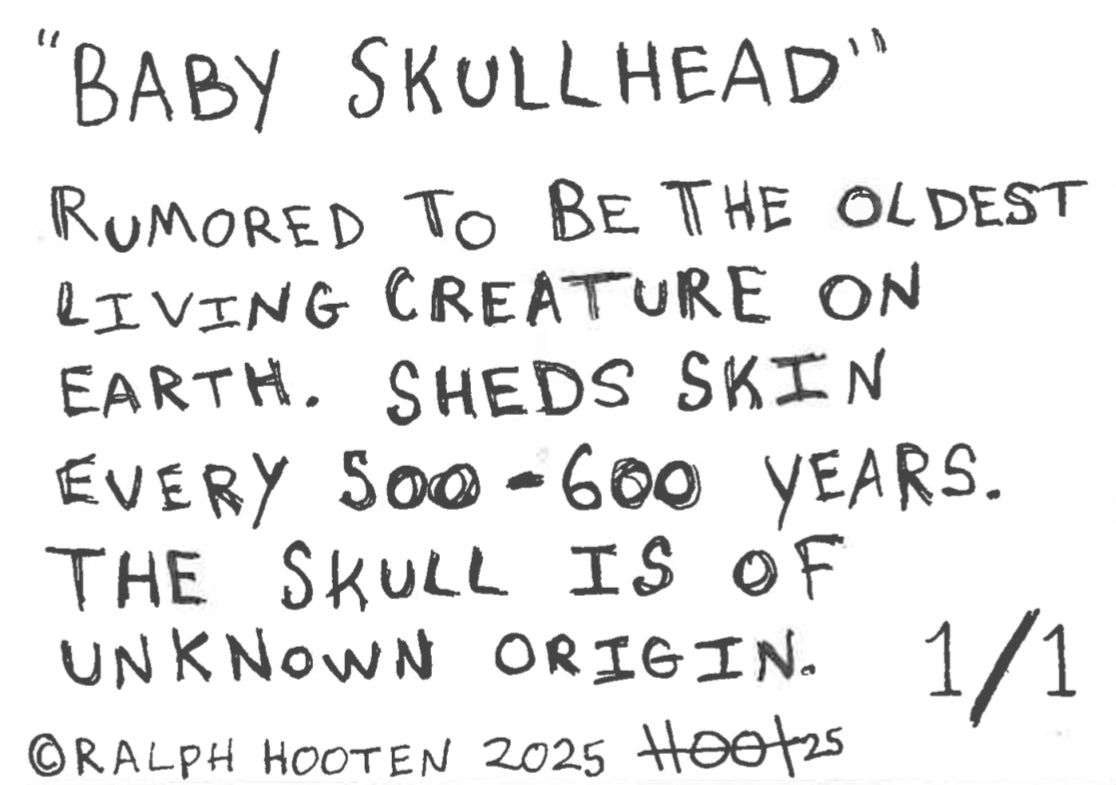 "BABY SKULLHEAD"
RUMORED TO BE THE OLDEST
LIVING CREATURE ON
EARTH. SHEDS SKIN
EVERY 500-600 YEARS.
THE SKULL IS OF
UNKNOWN ORIGIN. 1/1
©RALPH HOOTEN 2025 HOOT25